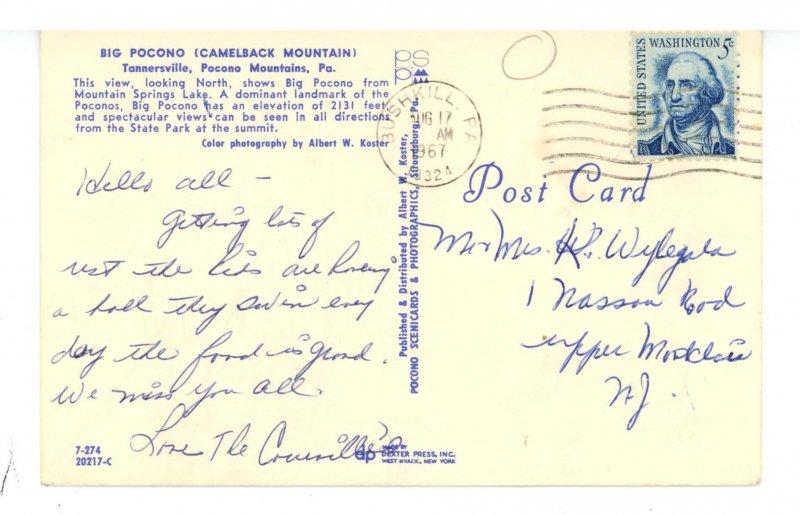 BIG POCONO (CAMELBACK MOUNTAIN)
Tannersville, Pocono Mountains, Pa.
This view, looking North, shows Big Pocono from
Mountain Springs Lake. A dominant landmark of the
Poconos, Big Pocono has an elevation of 2131 feet
and spectacular views can be seen in all directions
from the State Park at the summit.
Color photography by Albert W. Koster
Hello all –
Getting lots of
rest the kids are having
a ball they swim every
day the food is good.
We miss you all.
Love The
7-274
20217-C
PSPP
Published & Distributed by Albert W. Koster,
POCONO SCENICARDS & PHOTOGRAPHICS, Stroudsburg, Pa.
dp MADE BY
DEXTER PRESS, INC.
WEST NYACK, NEW YORK
BUSHKILL, PA
AUG 17
AM
1967
18324
UNITED STATES
WASHINGTON 5c
Post Card
Mr & Mrs. Wylegala
1 Nassau Rod
upper Montclair
NJ.